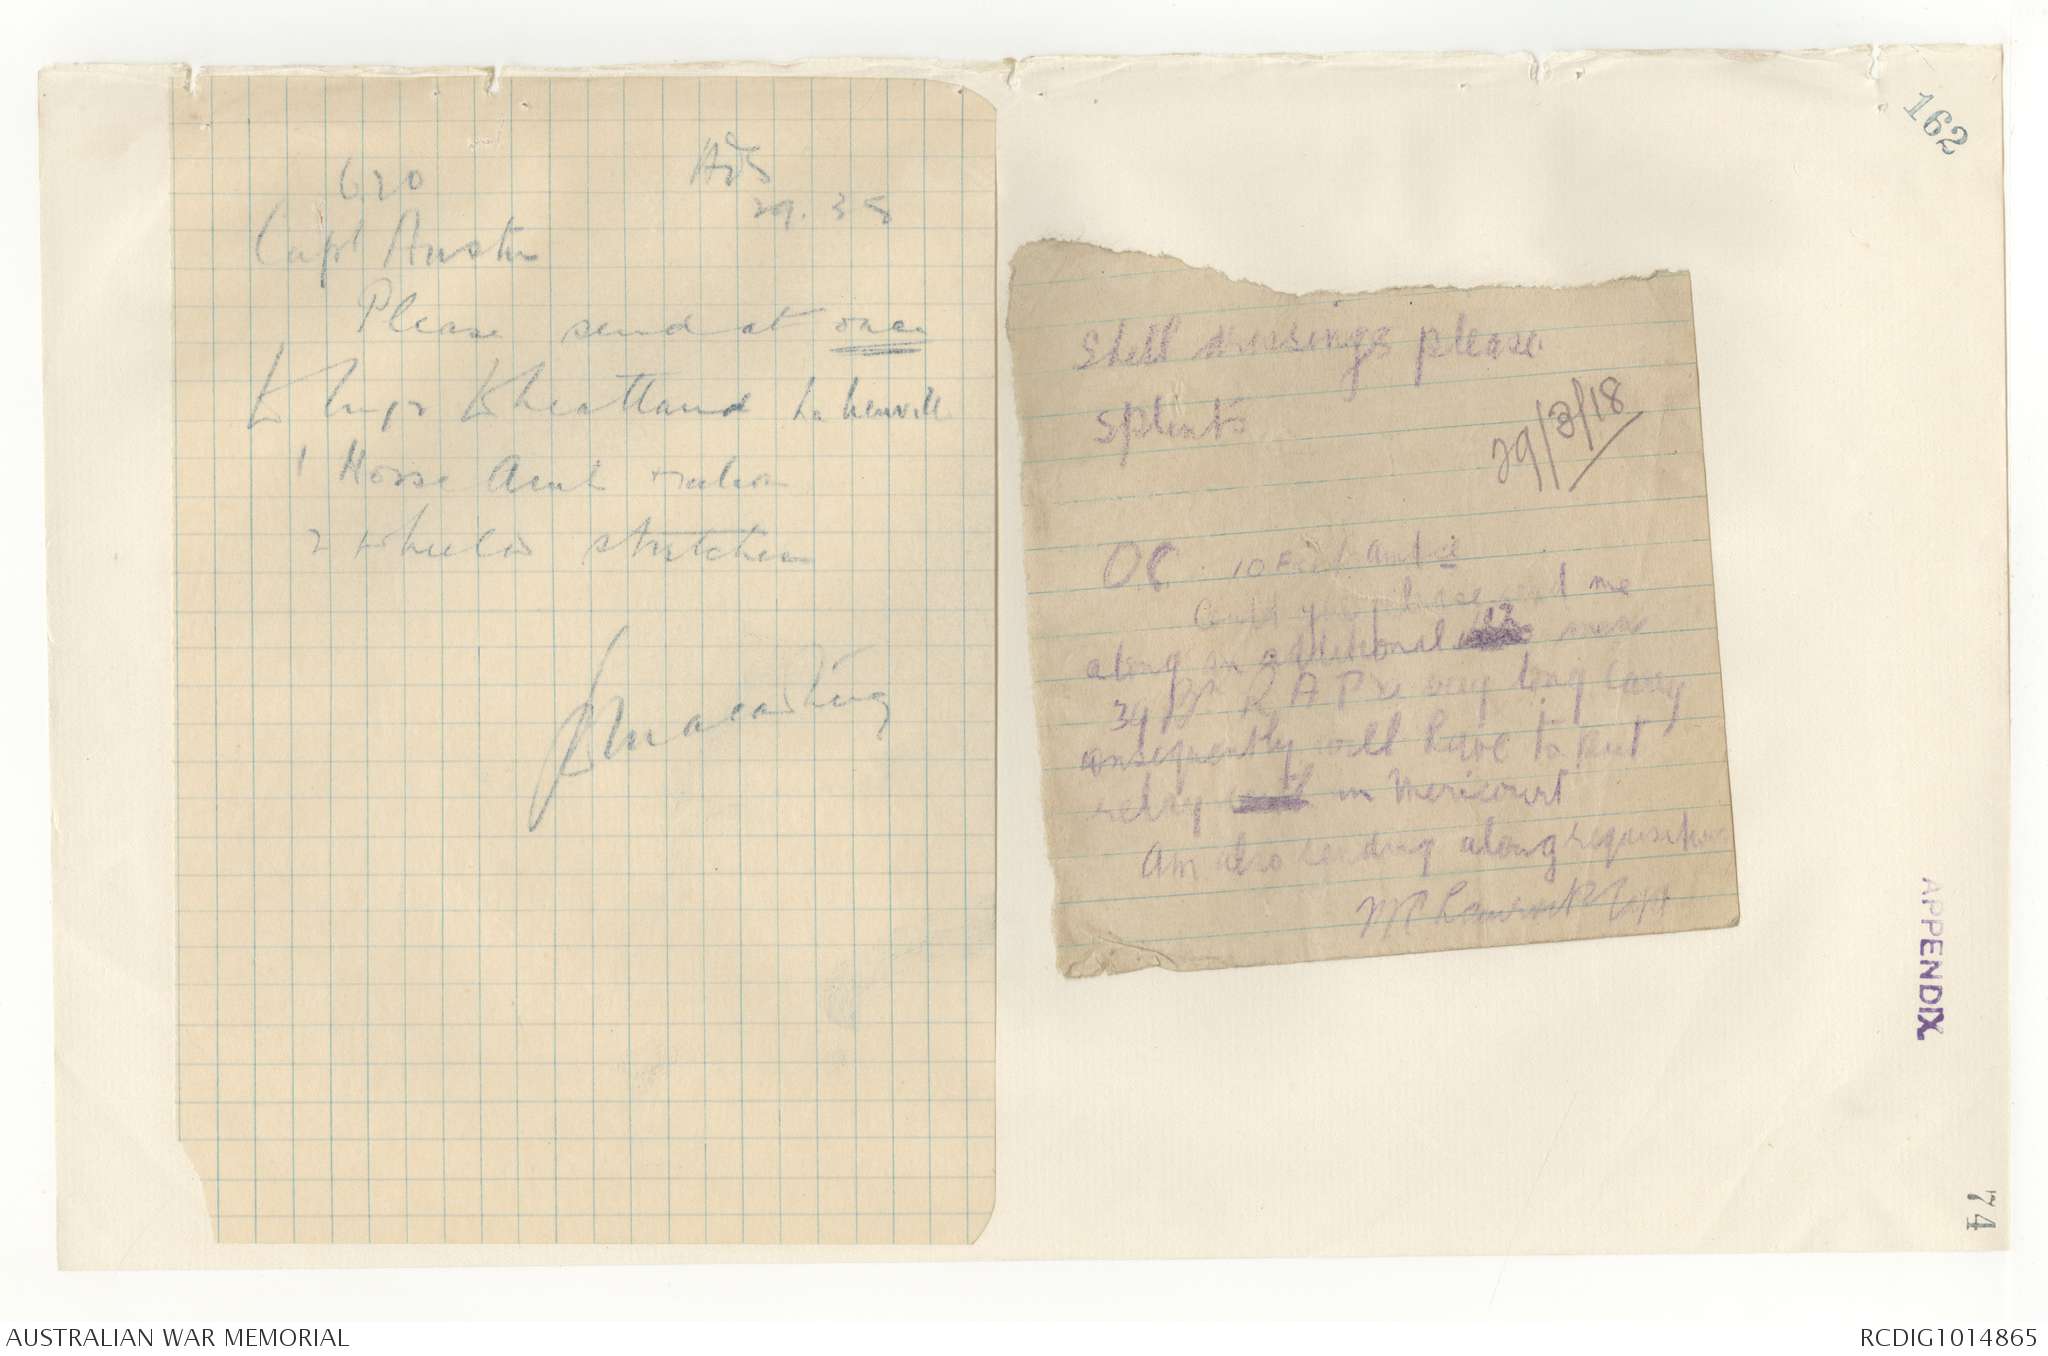 162
620
ADS
29.3.8
Capt Austin
Please send at once
to Major Wheatland La Neuville
1 Horse Amb
2 wheeled stretchers
Shell dressings please.
splints
29/3/18
OC 10 Field Ambce
Could you please send me
along an additional 12 men
39 Bn R A P is very long carry
consequently will have to put
relay in Mericourt
Am also sending along requisitions
Capt
APPENDIX
74
AUSTRALIAN WAR MEMORIAL
RCDIG1014865